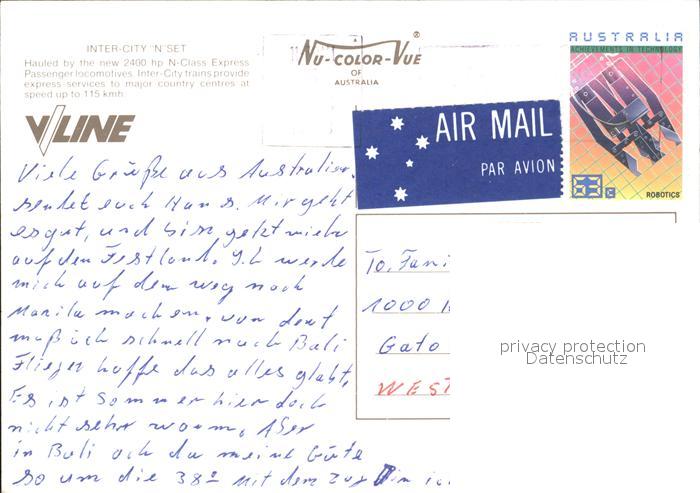 INTER-CITY "N" SET
Hauled by the new 2400 hp N-Class Express
Passenger locomotives. Inter-City trains provide
express-services to major country centres at
speed up to 115 kmh.
V/LINE
Nu-Color-Vue®
OF
AUSTRALIA
AUSTRALIA
ACHIEVEMENTS IN TECHNOLOGY
53c
ROBOTICS
AIR MAIL
PAR AVION
Viele Grüße aus Australien
sendet euch Hans. Mir geht
es gut, und bin jetzt wieder
auf dem Festland. Ich werde
mich auf dem weg nach
Manila machen, von dort
muß ich schnell nach Bali
Fliegen hoffe das alles glabt,
Es ist Sommer hier doch
nicht sehr warm, Aber
in Bali ach du meine Güte
so um die 38° Mit dem Zug bin ic
To. Fami
1000
Gato
WEST
privacy protection
Datenschutz